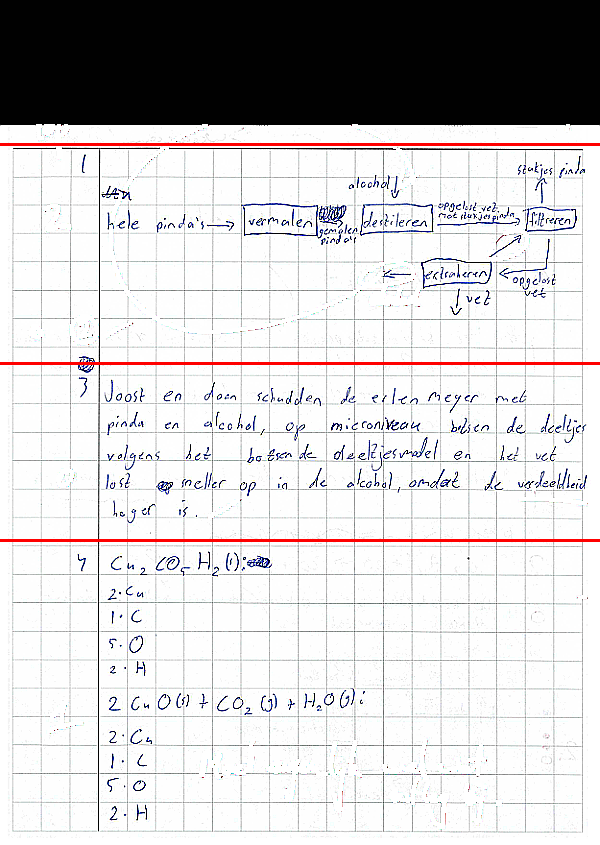 1
stukjes pinda
alcohol
hele pinda's → vermalen
gemalen pinda's
destileren
opgelost vet
met stukjes pinda
filtreren
extraheren
opgelost vet
vet
3 Joost en daan schudden de erlenmeyer met
pinda en alcohol, op microniveau botsen de deeltjes
volgens het botsende deeltjesmodel en het vet
lost sneller op in de alcohol, omdat de verdeeldheid
hoger is.
4 Cu₂CO₅H₂(s):
2·Cu
1·C
5·O
2·H
2 CuO(s) + CO₂(g) + H₂O(g):
2·Cu
1·C
5·O
2·H